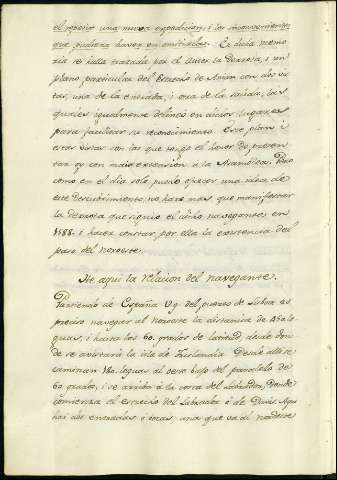 el repetir una nueva expedicion, i los inconvenientes
que pudiera haver en omitirlas. En dicha memo
ria se halla trazada por el Autor la Derrota, i un
plano particular del Estrecho de Anian con dos vis
tas, una de la entrada, i otra de la salida, las
quales igualmente delineo en dichos lugares
para facilitar su reconocimiento. Este plano i
estas vistas son las que tengo el honor de presen
tar oy con mas extension a la Academia. Pero
como en el dia solo puedo ofrecer una idea de
este descubrimiento, no hare mas que manifestar
la derrota que siguio el dicho navegante en
1588. i hacer constar por ella la existencia del
paso del noroeste.
He aqui la relacion del navegante.
Partiendo de España ò del puerto de Lisboa es
preciso navegar al noroeste la distancia de 450 le
guas, i hasta los 60. grados de latitud, desde don
de se avistará la isla de Frislandia. Desde alli se
caminan 180. leguas al oeste bajo del paralelo de
60 grados, i se arriba à la costa del Labrador, donde
comienza el estrecho del Labrador ò de Davis. Aqui
hai dos entradas, ò bocas, una que va al nordeste